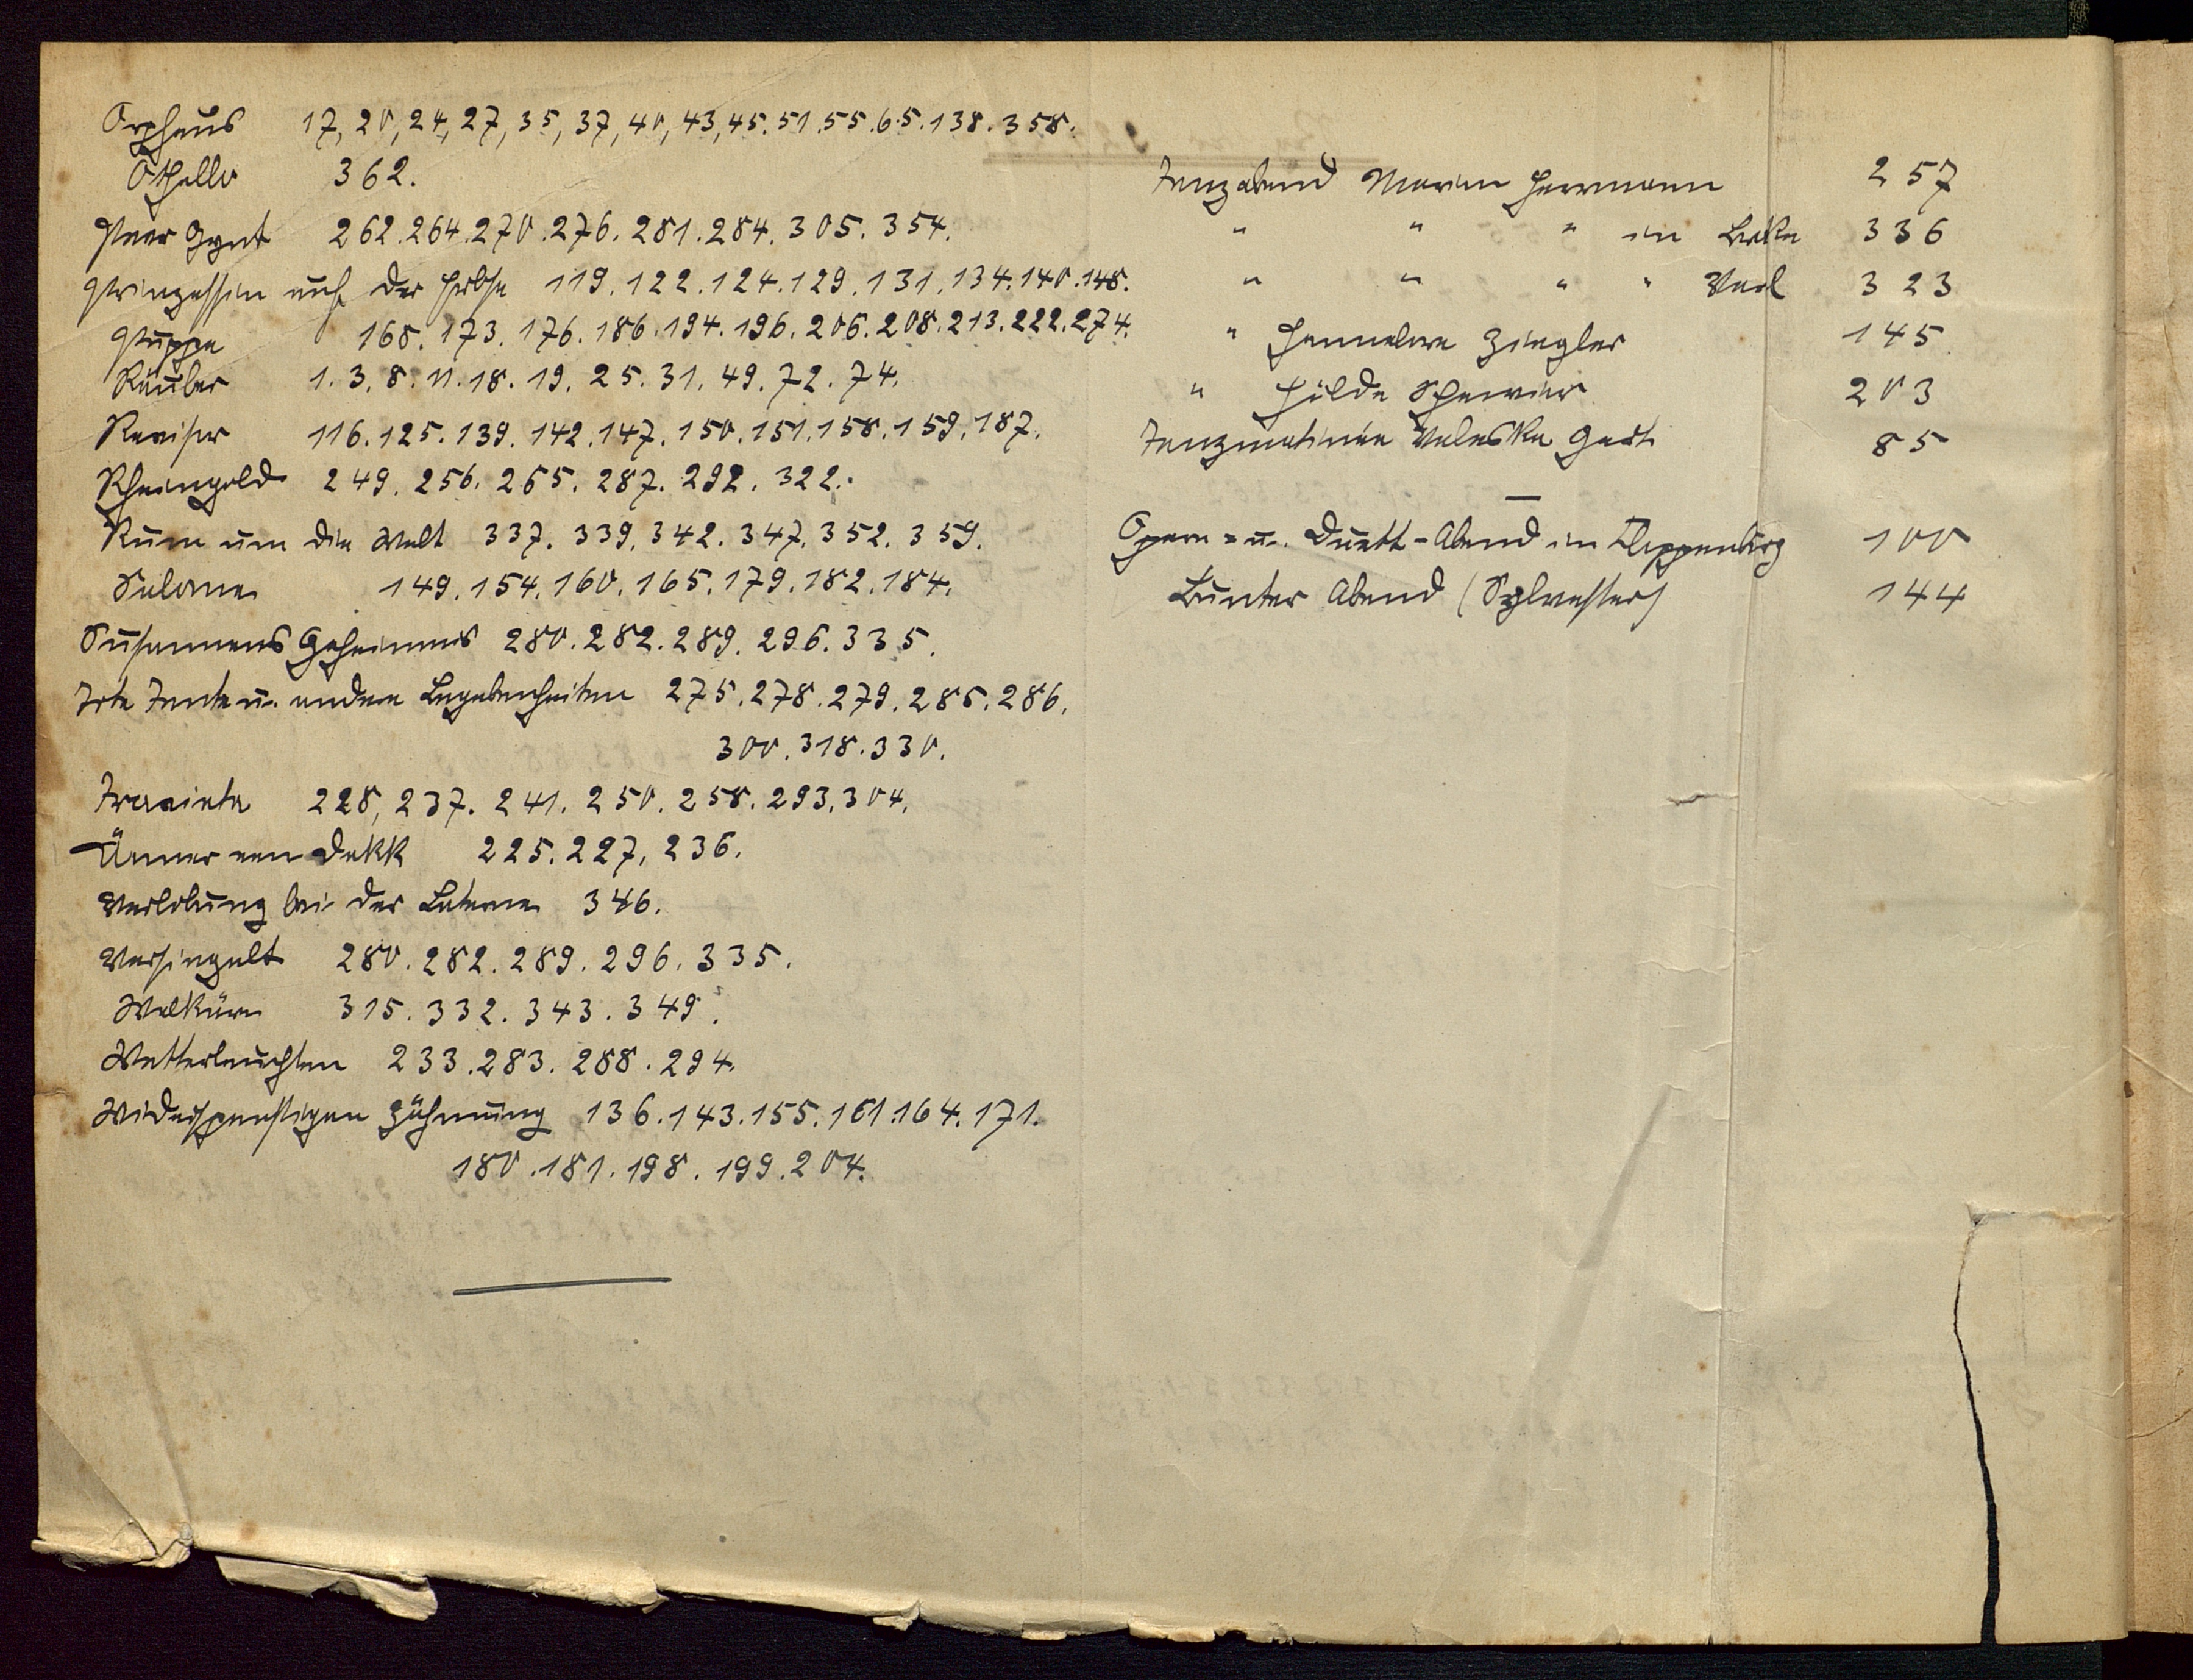 Orpheus 17, 20, 24, 27, 35, 37, 40, 43, 45. 51. 55. 65. 138. 358.
Othello 362.
Peer Gynt 262. 264. 270. 276. 281. 284. 305. 354.
Prinzessin auf der Erbse 119. 122. 124. 129. 131. 134. 140. 148.
Puppe 168. 173. 176. 186. 194. 196. 206. 208. 213. 222. 274.
Räuber 1. 3. 8. 11. 18. 19. 25. 31. 49. 72. 74.
Revisor 116. 125. 139. 142. 147. 150. 151. 158. 159. 187.
Rheingold 249. 256. 265. 287. 292. 322.
Rum um die Welt 337. 339. 342. 347. 352. 359.
Salome 149. 154. 160. 165. 179. 182. 184.
Susannens Geheimnis 280. 282. 289. 296. 335.
Tote Tante u. andere Begebenheiten 275. 278. 279. 285. 286.
300. 318. 330.
Traviata 228, 237. 241. 250. 258. 293. 304.
Ünner een Dakk 225. 227, 236.
Verlobung bei der Laterne 346.
Versiegelt 280. 282. 289. 296. 335.
Walküre 315. 332. 343. 349.
Wetterleuchten 233. 283. 288. 294.
Widerspenstigen Zähmung 136. 143. 155. 161. 164. 171.
180. 181. 198. 199. 204.
Tanzabend Marion Herrmann 257
" " " in Brake 336
" " " " Varel 323
" Hannelore Ziegler 145
" Hilde 203
Tanzmatinée Valeska Gert 85
Opern- u. Duett-Abend in Cloppenburg 100
Bunter Abend (Sylvester) 144